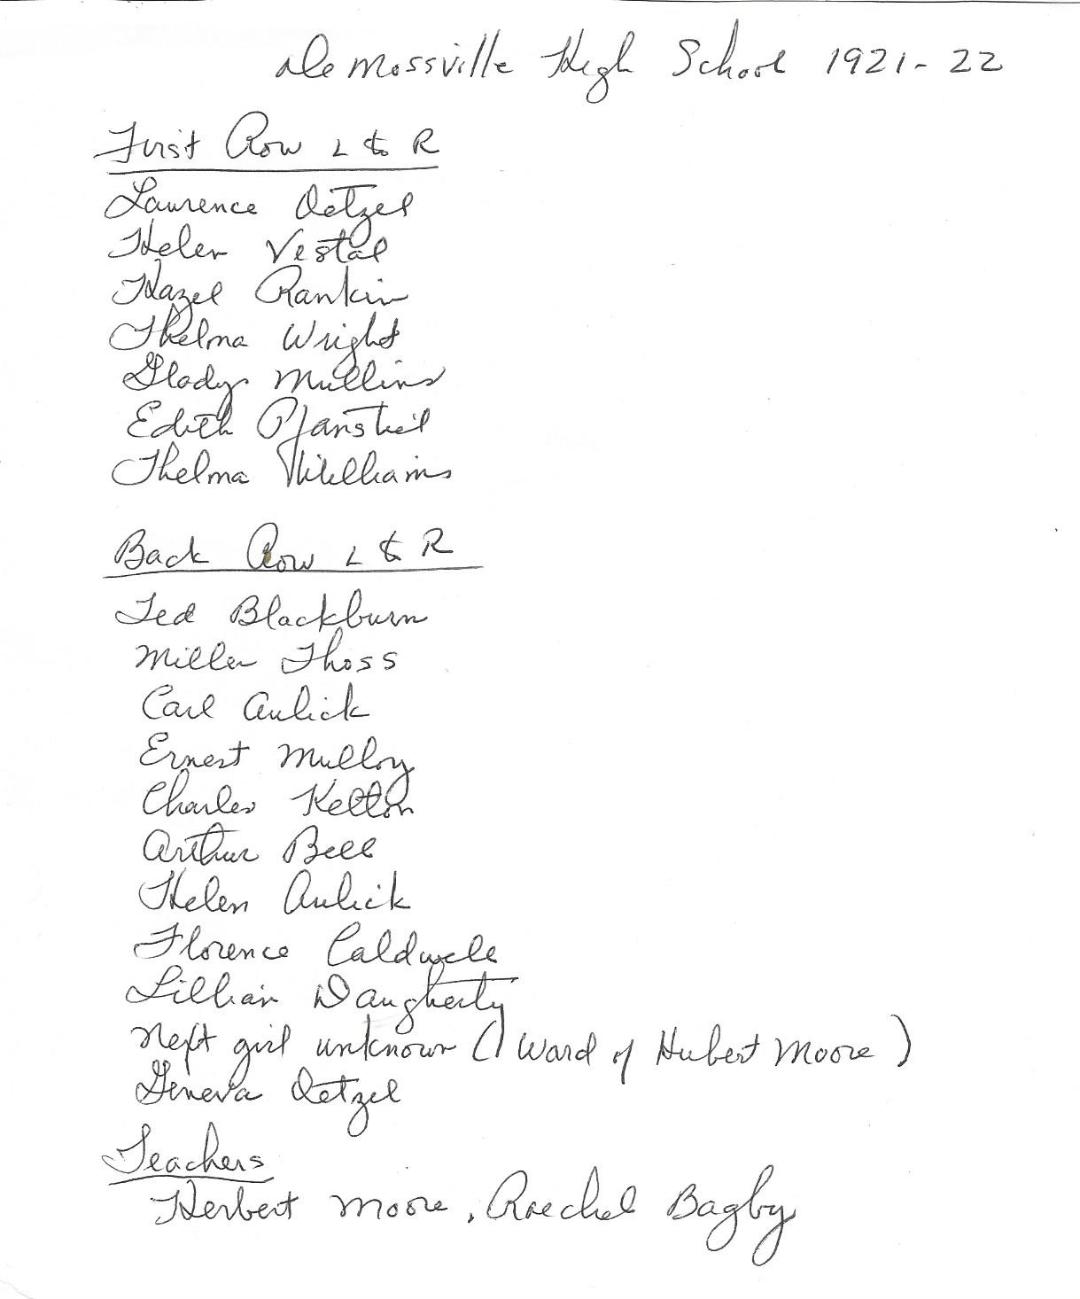 De Mossville High School 1921-22
First Row L to R
Laurence Detzel
Helen Vestal
Hazel Rankin
Thelma Wright
Gladys Mullins
Edith Pfanstiel
Thelma Williams
Back Row L to R
Ted Blackburn
Miller Thoss
Carl Aulick
Ernest Mulloy
Charles Kelton
Arthur Bell
Helen Aulick
Florence Caldwell
Lillian Daugherty
Next girl unknown (Ward of Hubert Moore)
Geneva Detzel
Teachers
Herbert Moore, Raechel Bagby